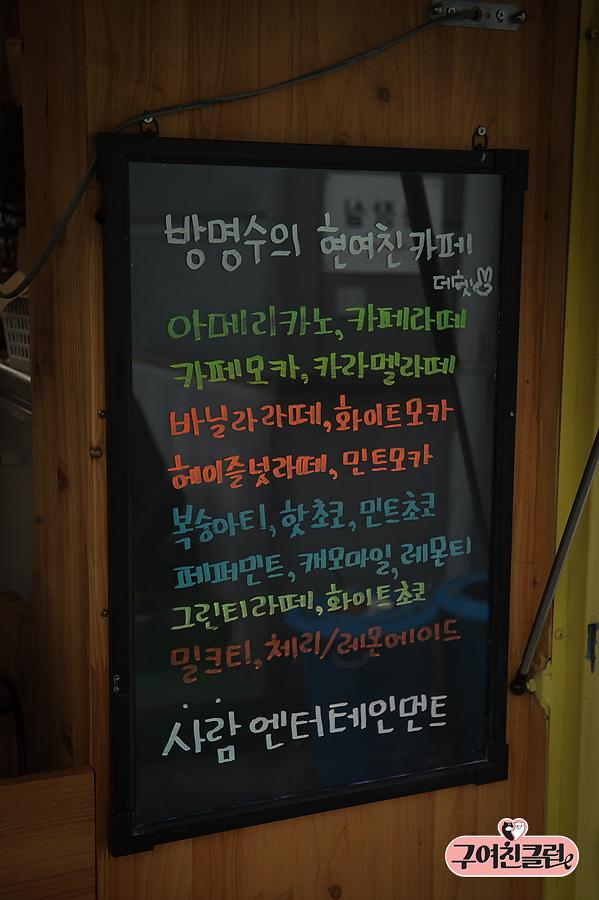 방명수의 현여친 카페
데헷
아메리카노, 카페라떼
카페모카, 카라멜라떼
바닐라라떼, 화이트모카
헤이즐넛라떼, 민트모카
복숭아티, 핫초코, 민트초코
페퍼민트, 캐모마일, 레몬티
그린티라떼, 화이트초코
밀크티, 체리/레몬에이드
사람 엔터테인먼트
구여친클럽